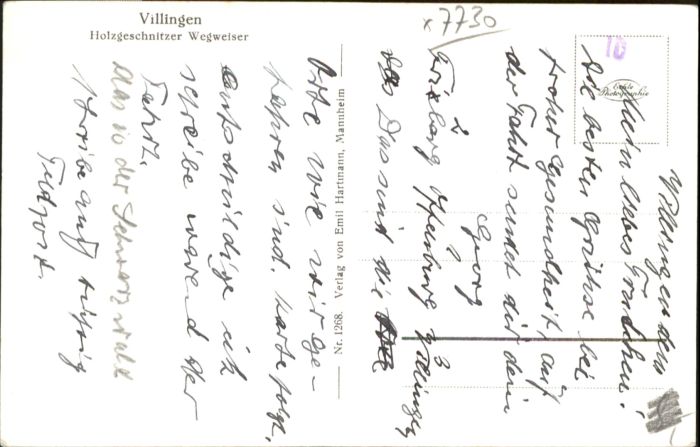 Villingen
Holzgeschnitzer Wegweiser
x 7730
10
Echte
Photographie
Nr. 1268. Verlag von Emil Hartmann, Mannheim
Villingen den
Mein liebes Trudchen!
die besten Grühse bei
froher Gesundheit auf
der Fahrt sendet dir dein
Georg
2 3
Freiburg Offenburg Villingen
Das sind die
Orte wie wir ge-
fahren sind. Karte folgt.
entschuldige ich
schreibe warend der
Fahrt.
Das ist der Schwarzwald
schreibe auf
Feldpost.